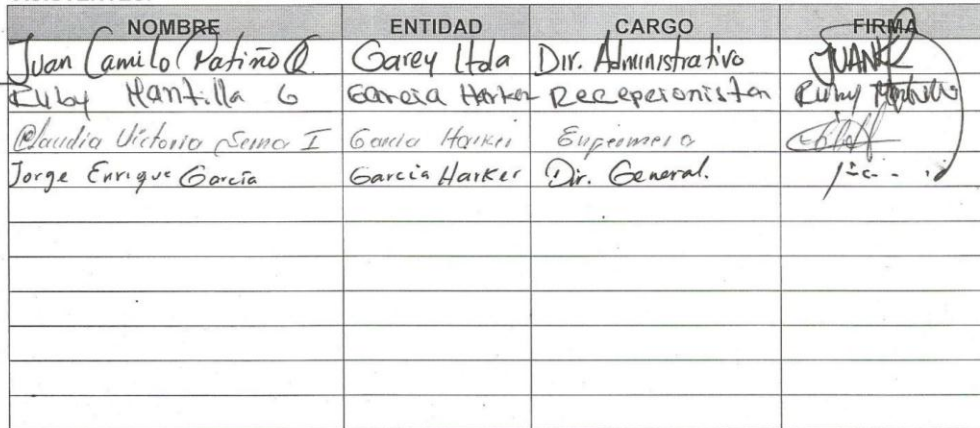 NOMBRE ENTIDAD CARGO FIRMA
Juan Camilo Patiño Q. Garey Ltda Dir. Administrativo JUANK
Ruby Mantilla G Garcia Harker Recepcionista Ruby Mantilla
Claudia Victoria Serna I Garcia Harker Enfermera
Jorge Enrique García García Harker Dir. General.